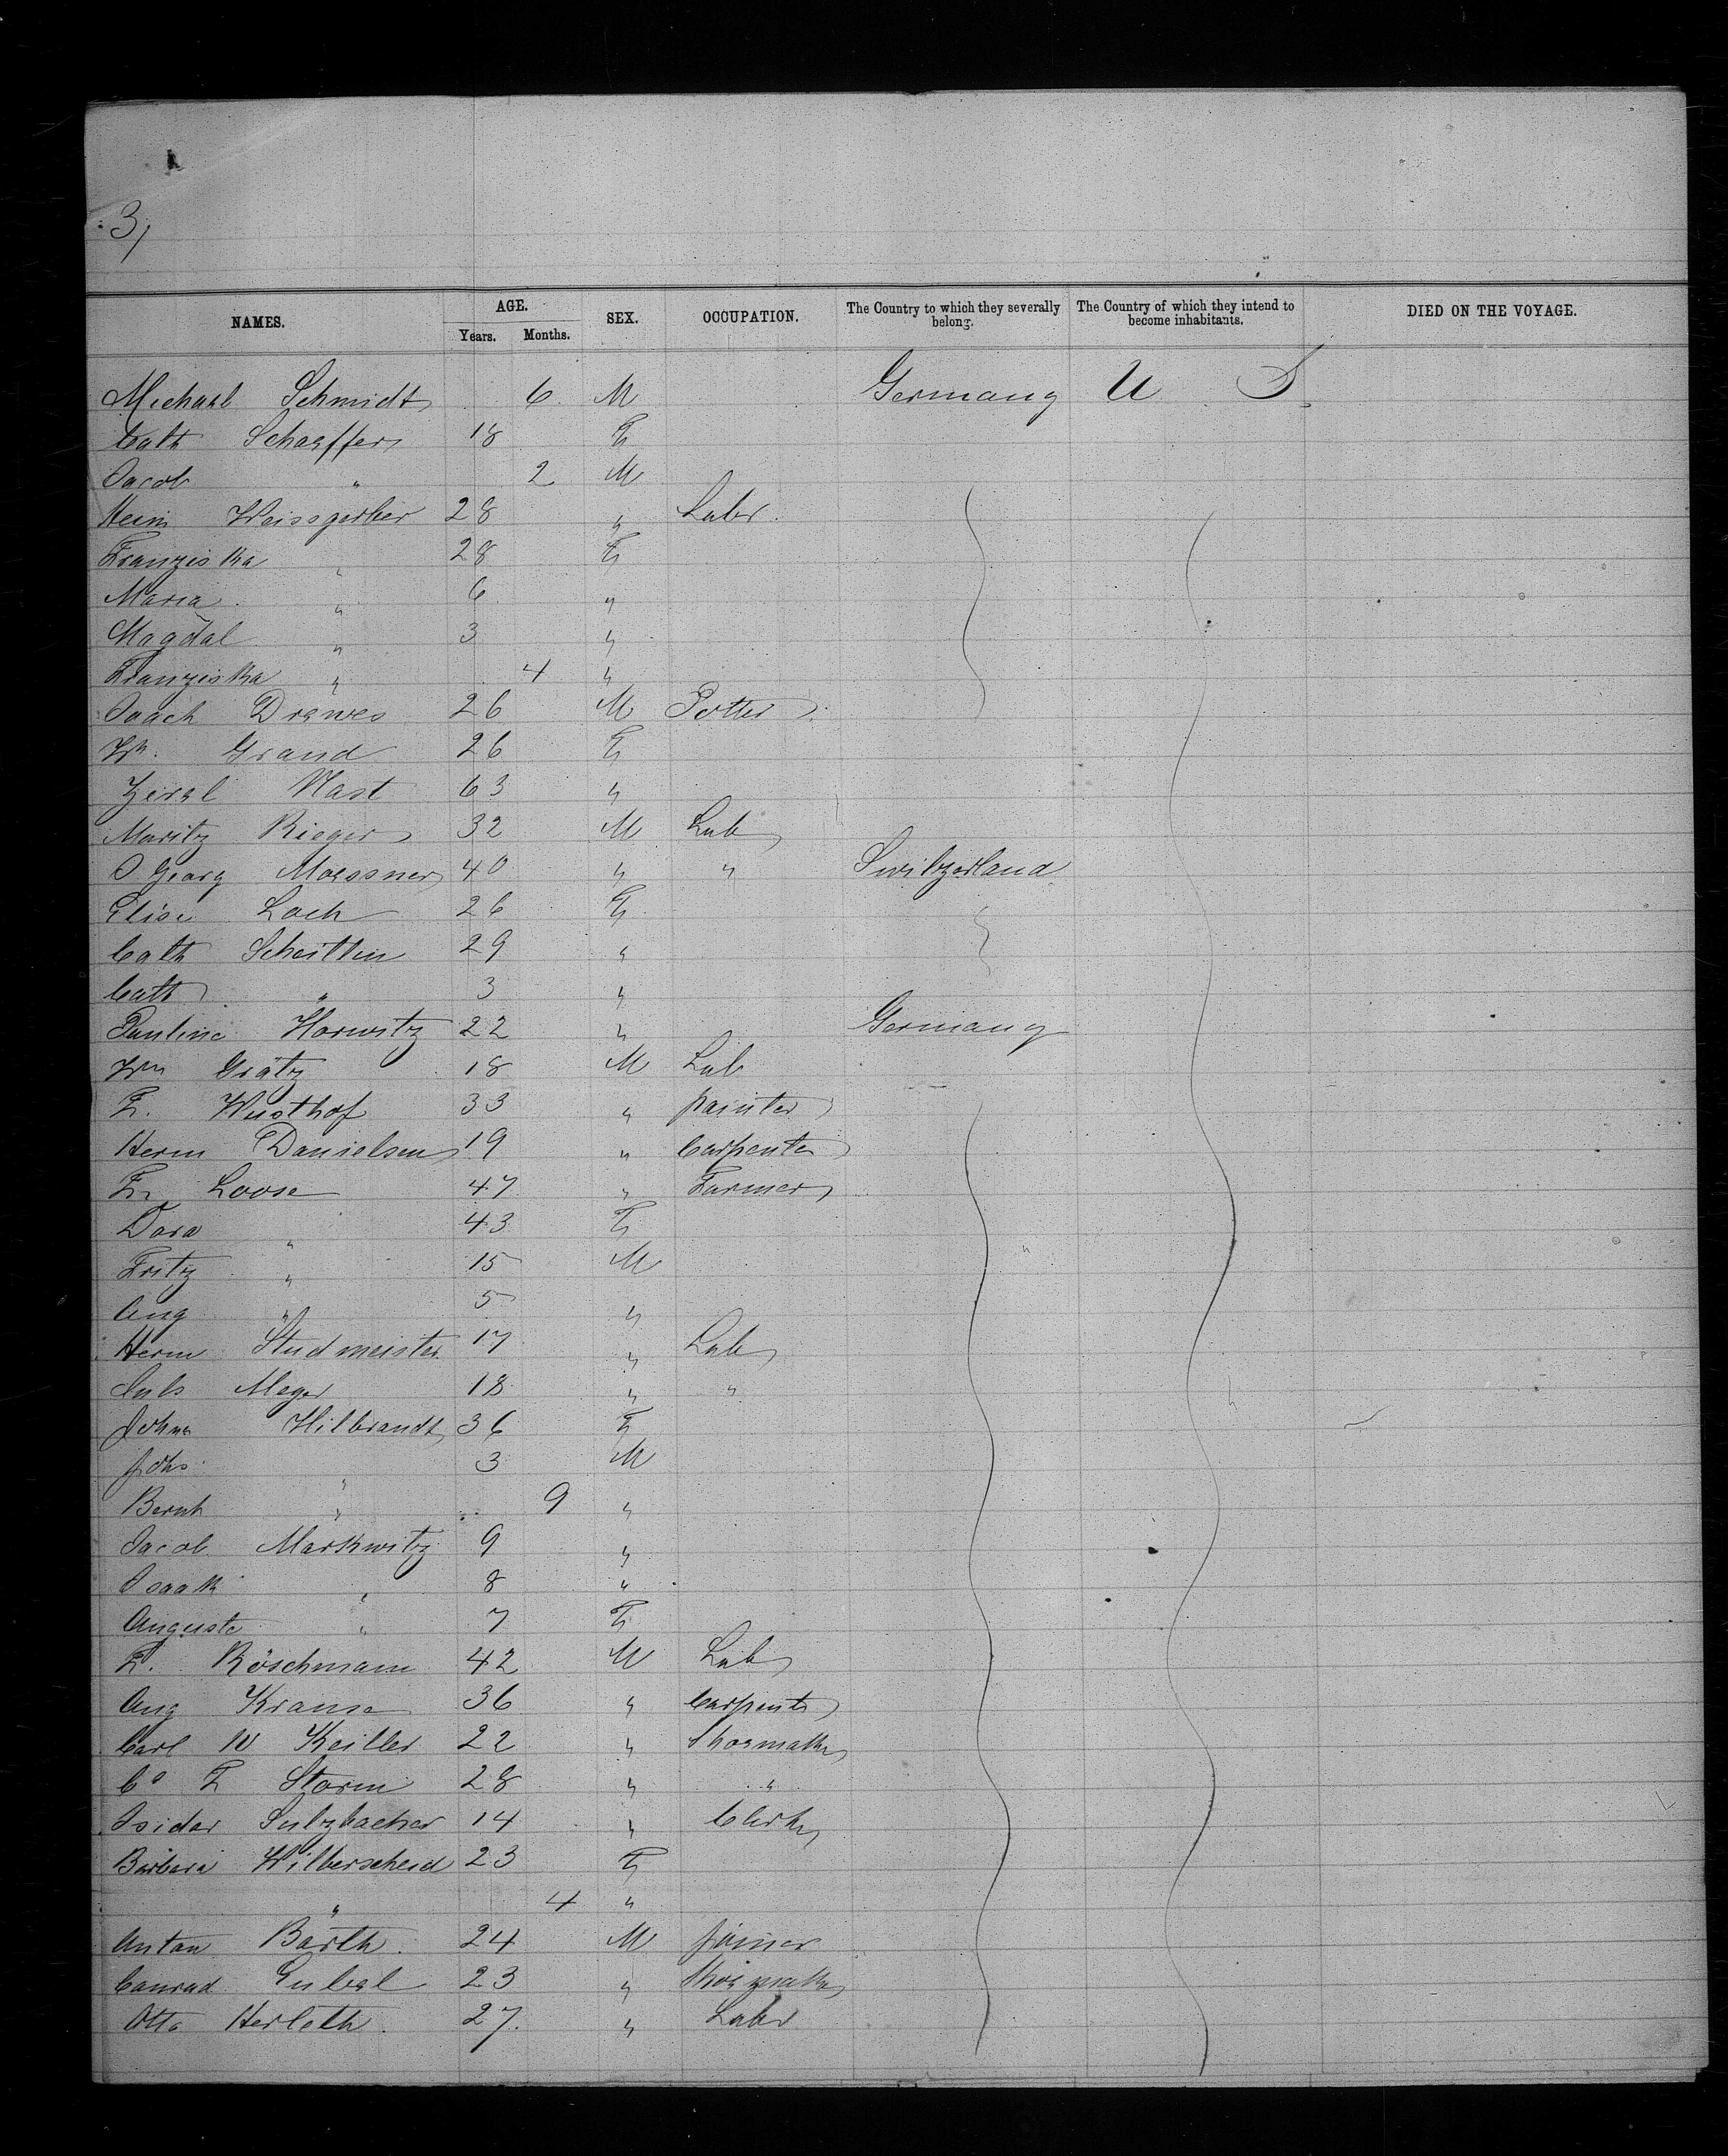 3/
NAMES. AGE. Years. Months. SEX. OCCUPATION. The Country to which they severally belong. The Country of which they intend to become inhabitants. DIED ON THE VOYAGE.
Michael Schmidt 6 M Germany U S
Cath Schaeffer 18 F
Jacob " 2 M
Weissgerber 28 " Labr.
Franziska " 28 F
Maria " 6 "
Magdal " 3 "
Franziska " 4 "
Joach Drewes 26 M Potter
Wm. Grand 26 F
Nast 63 "
Moritz Rieger 32 M Lab
J Georg Moessner 40 " " Switzerland
Elise Loch 26 F
Cath Scheitlin 29 "
Cath " 3 "
Pauline Horwitz 22 " Germany
Wm Grätz 18 M Lab
F. Wusthof 33 " painter
Herm Danielsen 19 " Carpenter
Fr Loose 47 " Farmer
Dora " 43 F
Fritz " 15 M
Aug " 5 "
Herm Studmeister 17 " Lab
Meyer 18 " "
Johna Hilbrandt 36 F
Johs " 3 M
Bernh " 9 "
Jacob Markwitz 9 "
Isaak " 8 "
Auguste " 7 F
F. Röschmann 42 M Lab
Aug Krause 36 " Carpenter
Carl W Keiller 22 " Shoemaker
F Storm 28 " "
Isidor Sulzbacher 14 " Clerk
Barbara Wilberscheid 23 F
" 4 "
Anton Barth 24 M joiner
Conrad 23 " Shoemaker
Otto Herleth 27. " Labr